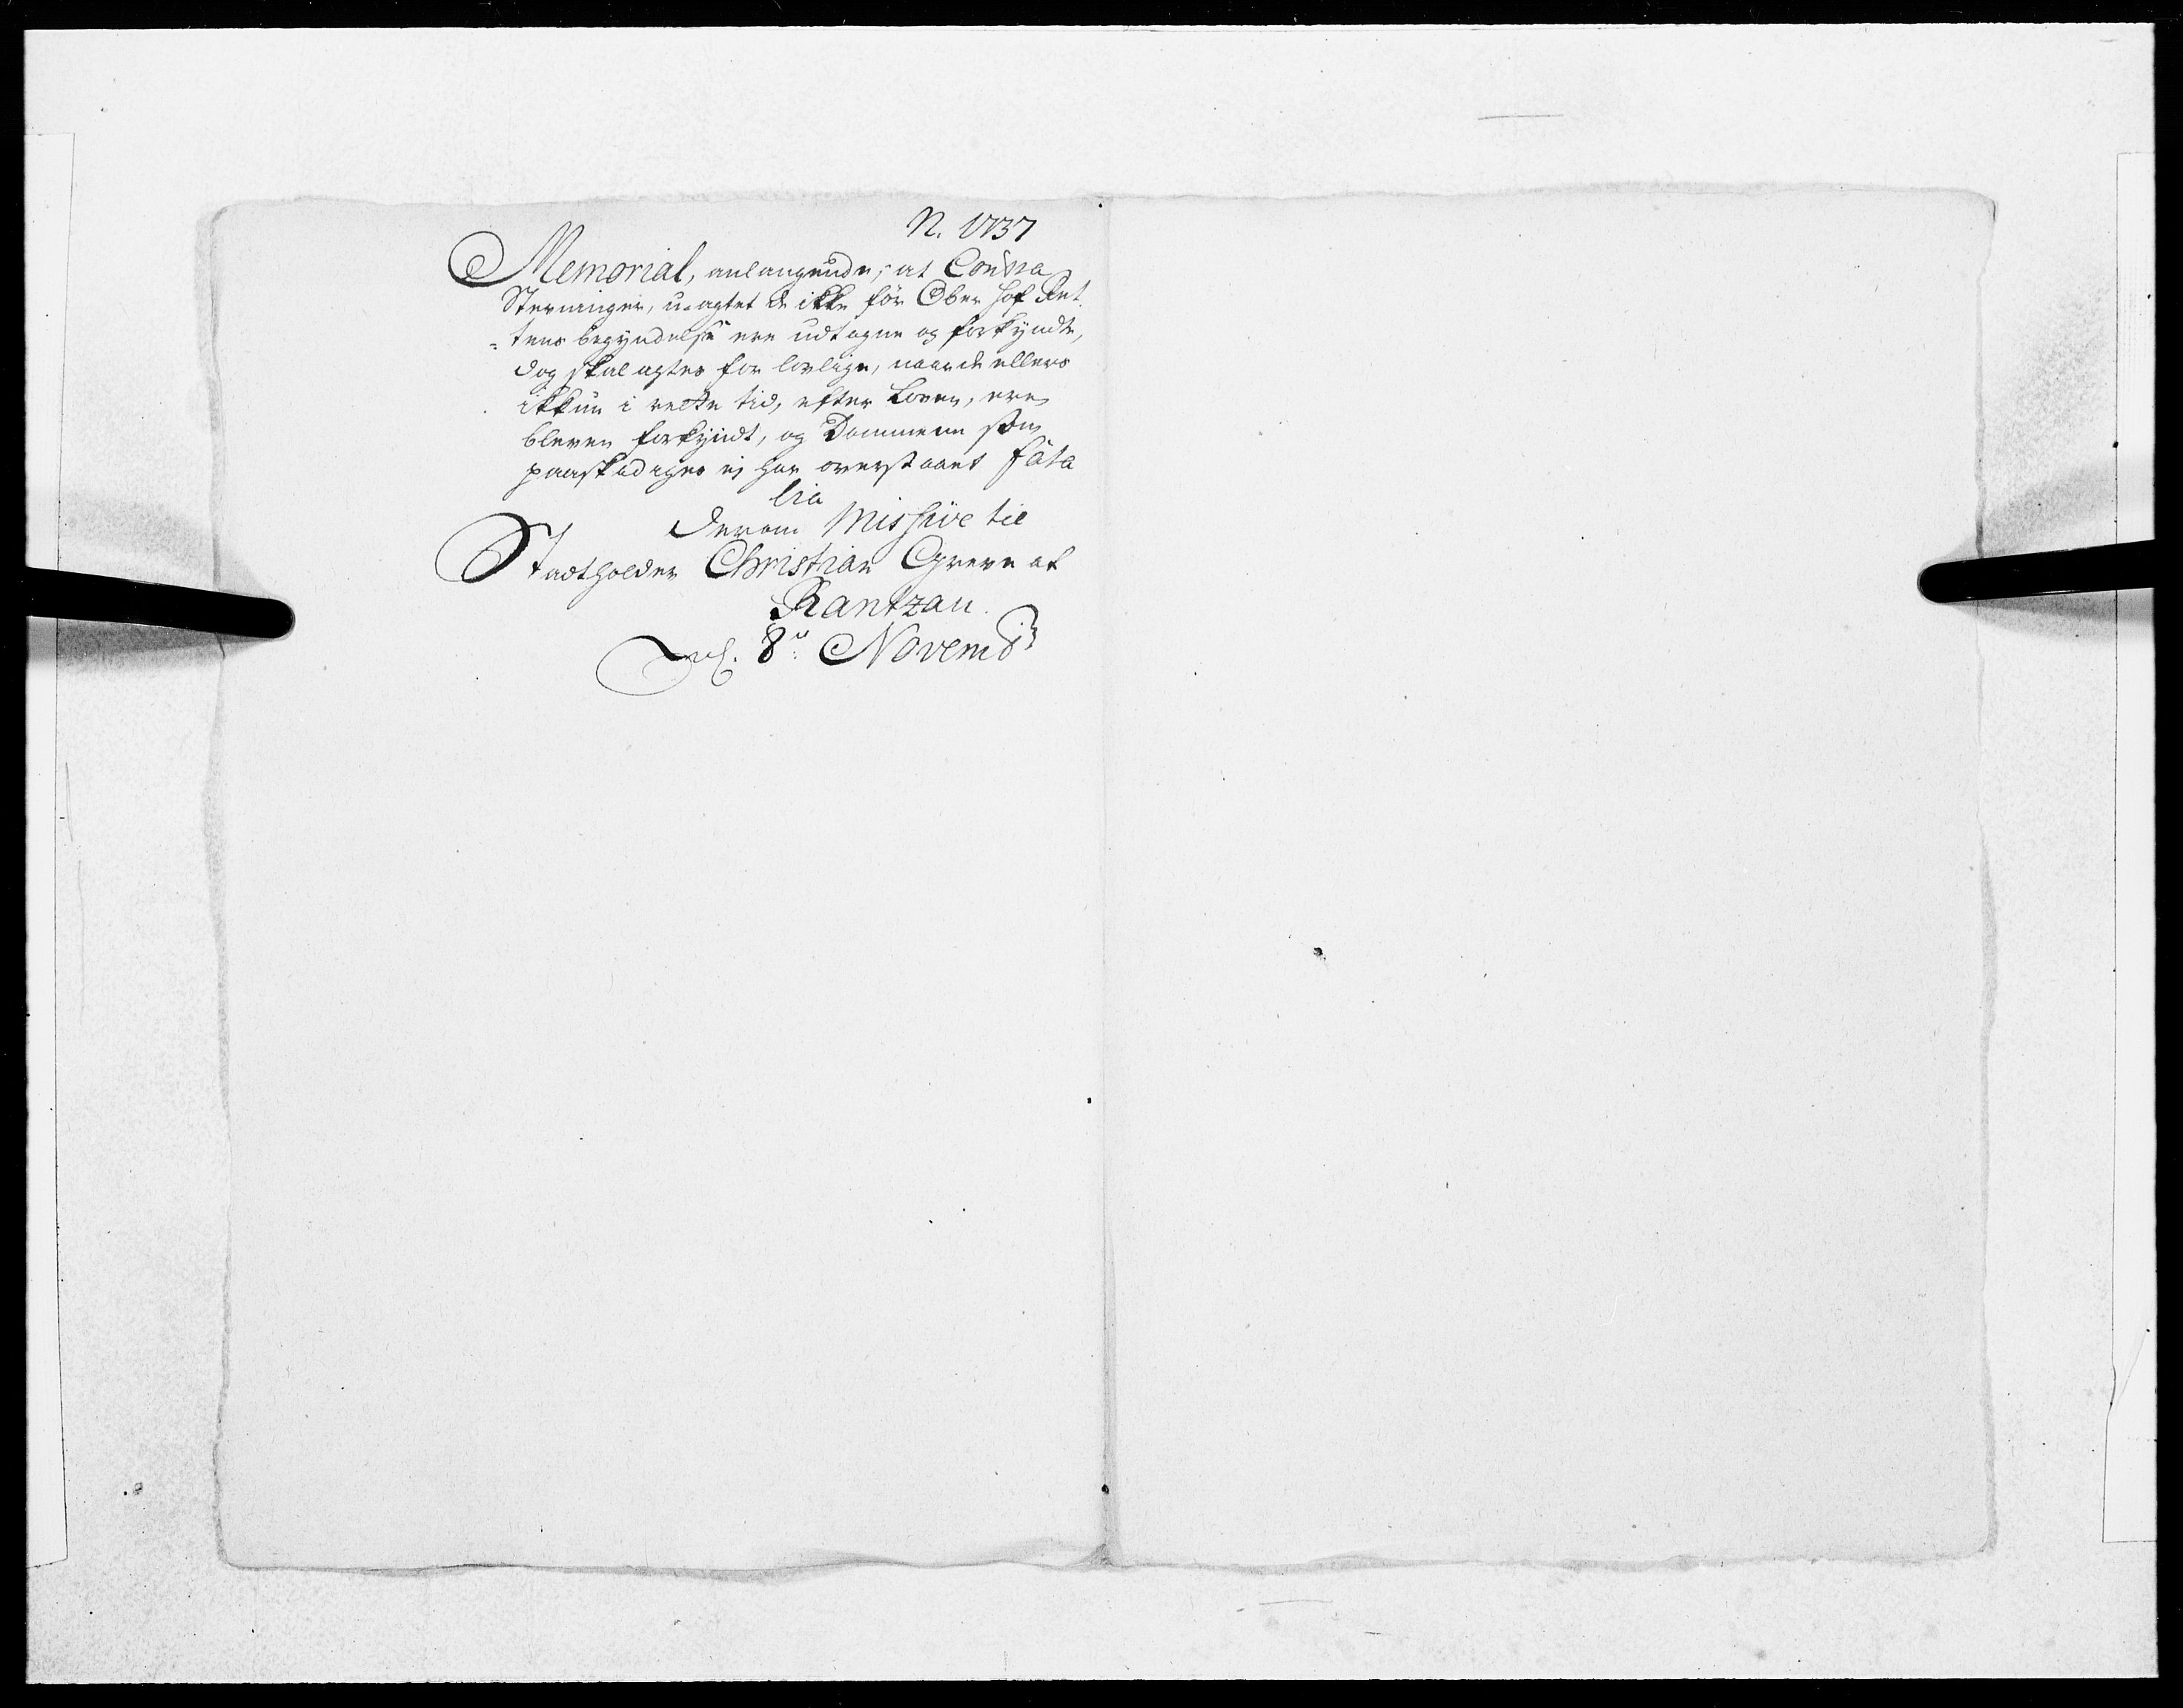 N. 1737
Memorial, anlangende, at Contra
Stevninger, uagtet de ikke før Ober Hof Ret
=tens begyndelse ere udtagne og forkyndte,
dog skal agtes for lovlige, naar de ellers
ikkun i rette tid, efter Loven, ere
bleven forkyndt, og Dommene som
paaskadiges ej har overstaaet fata
lia
Derom Missive til
Stadtholder Christian Greve af
Rantzau.
8de Novembr